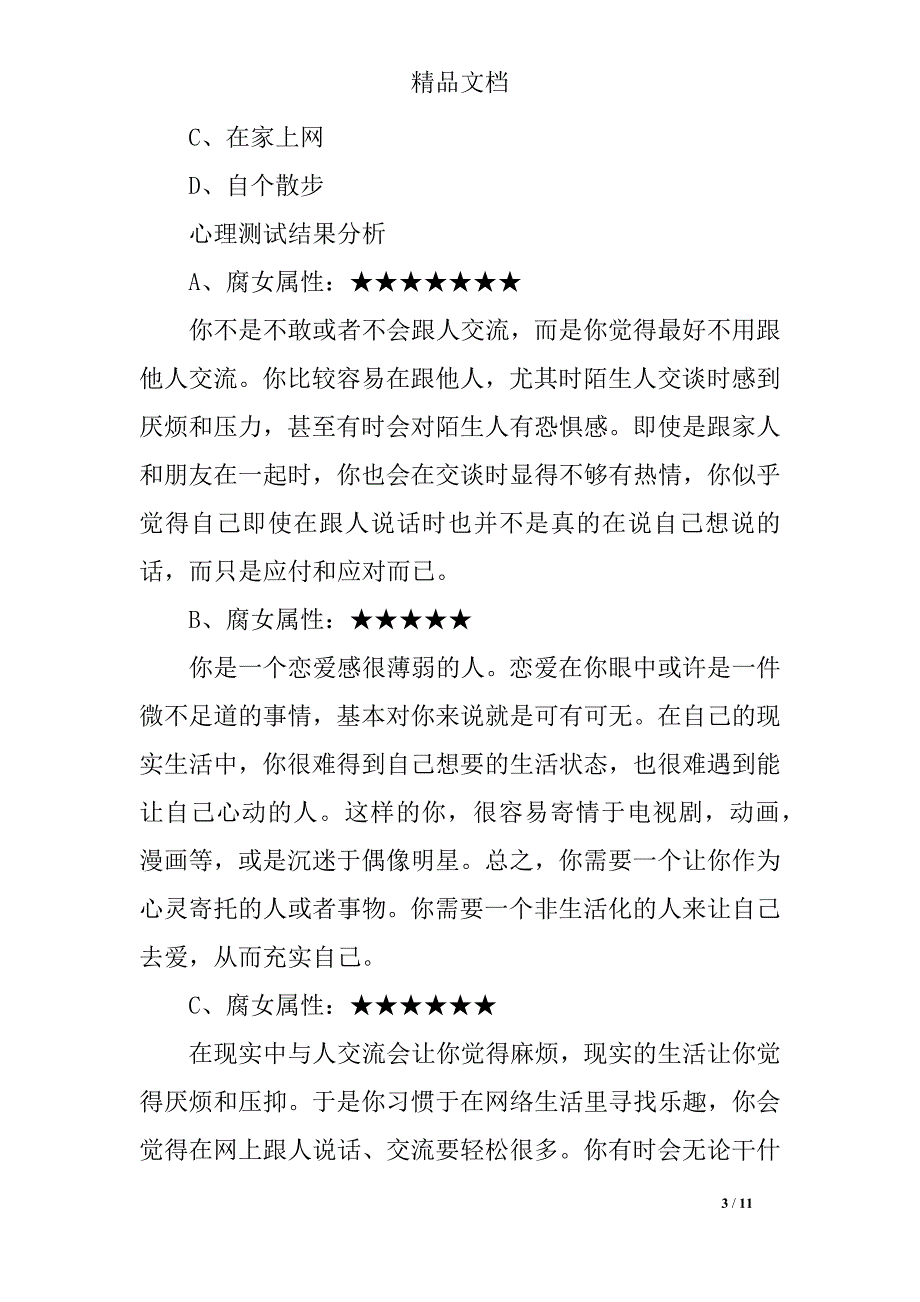 精品文档
C、在家上网
D、自个散步
心理测试结果分析
A、腐女属性：★★★★★★★
你不是不敢或者不会跟人交流，而是你觉得最好不用跟
他人交流。你比较容易在跟他人，尤其时陌生人交谈时感到
厌烦和压力，甚至有时会对陌生人有恐惧感。即使是跟家人
和朋友在一起时，你也会在交谈时显得不够有热情，你似乎
觉得自己即使在跟人说话时也并不是真的在说自己想说的
话，而只是应付和应对而已。
B、腐女属性：★★★★★
你是一个恋爱感很薄弱的人。恋爱在你眼中或许是一件
微不足道的事情，基本对你来说就是可有可无。在自己的现
实生活中，你很难得到自己想要的生活状态，也很难遇到能
让自己心动的人。这样的你，很容易寄情于电视剧，动画，
漫画等，或是沉迷于偶像明星。总之，你需要一个让你作为
心灵寄托的人或者事物。你需要一个非生活化的人来让自己
去爱，从而充实自己。
C、腐女属性：★★★★★★
在现实中与人交流会让你觉得麻烦，现实的生活让你觉
得厌烦和压抑。于是你习惯于在网络生活里寻找乐趣，你会
觉得在网上跟人说话、交流要轻松很多。你有时会无论干什
3 / 11